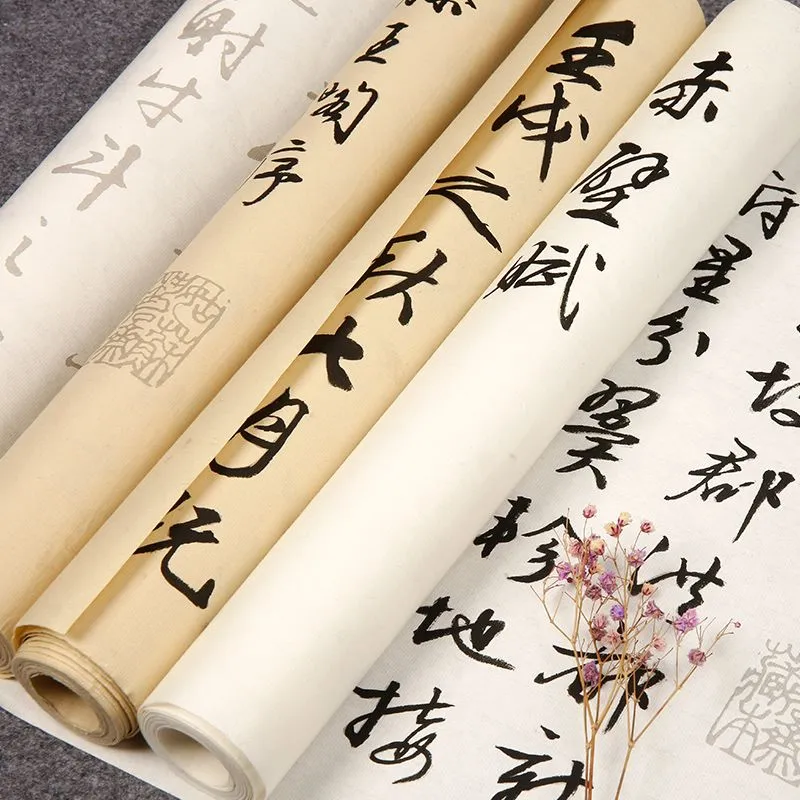 故郡洪都新
府星分翼軫地接
赤壁賦
壬戌之秋七月既
滕王閣序
射牛斗之